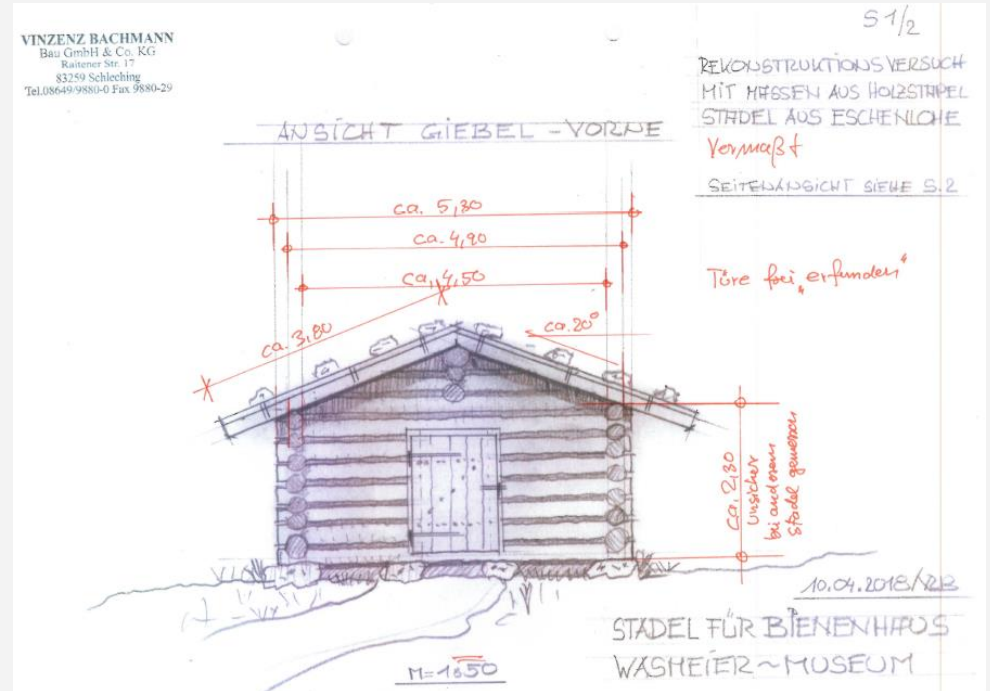 VINZENZ BACHMANN
Bau GmbH & Co. KG
Raitener Str. 17
83259 Schleching
Tel.08649/9880-0 Fax 9880-29
S 1/2
REKONSTRUKTIONSVERSUCH
MIT MASSEN AUS HOLZSTAPEL
STADEL AUS ESCHENLOHE
Vermaßt
SEITENANSICHT SIEHE S.2
ANSICHT GIEBEL - VORNE
ca. 5,30
ca. 4,90
ca. 4,50
Türe frei „erfunden"
ca. 3,80
ca. 20°
ca. 2,30
unsicher
bei anderem
Stadel gemessen
10.04.2018/
STADEL FÜR BIENENHAUS
WASMEIER~MUSEUM
M=1:50